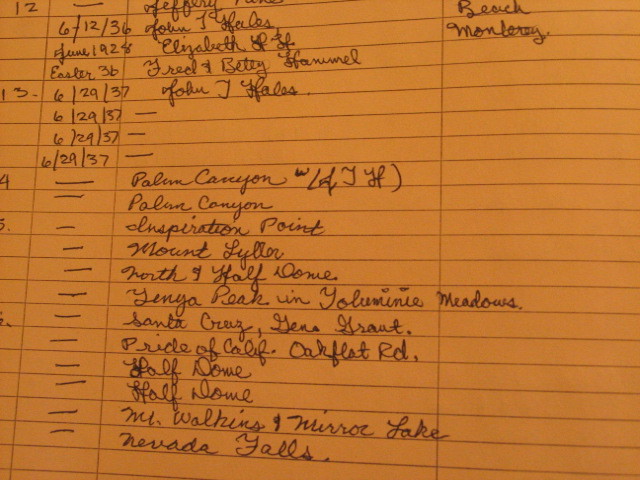 12 — Jeffery Beach
6/12/36 John T Hales Monterey.
June 1928 Elizabeth H H
Easter 36 Fred & Betty Hammel
13- 6/29/37 John T Hales.
6/29/37 —
6/29/37 —
6/29/37 —
4 — Palm Canyon w/(J T H)
— Palm Canyon
5. — Inspiration Point
— Mount Lyller
— North & Half Dome
— Tenya Peak in Toluminie Meadows.
— Santa Cruz, Genl Grant.
— Pride of Calif. Oakflat Rd.
— Half Dome
— Half Dome
— Mt. Walkins & Mirror Lake
— Nevada Falls.